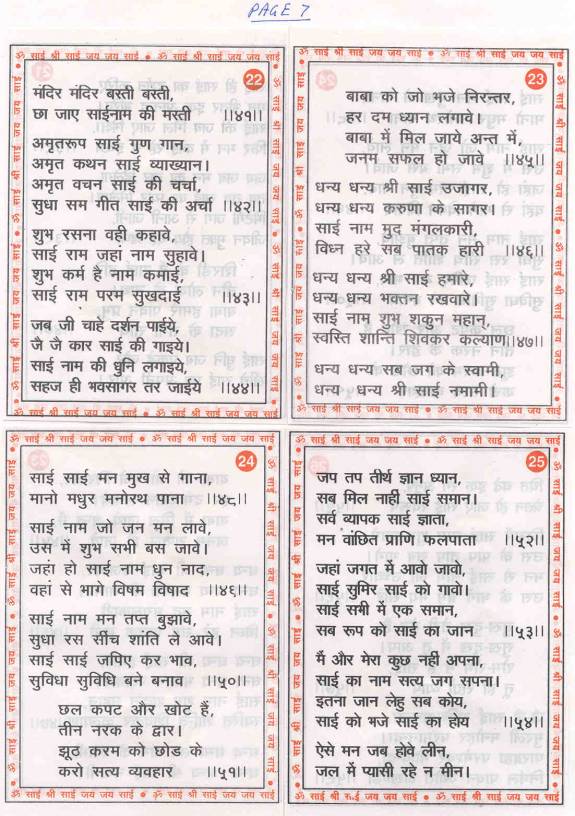 PAGE 7
ॐ साईं श्री साईं जय जय साईं • ॐ साईं श्री साईं जय जय साईं
22
मंदिर मंदिर बस्ती बस्ती,
छा जाए साईनाम की मस्ती ।।४१।।
अमृतरूप साई गुण गान,
अमृत कथन साई व्याख्यान।
अमृत वचन साई की चर्चा,
सुधा सम गीत साई की अर्चा ।।४२।।
शुभ रसना वही कहावे,
साई राम जहां नाम सुहावे।
शुभ कर्म है नाम कमाई,
साई राम परम सुखदाई ।।४३।।
जब जी चाहे दर्शन पाईये,
जै जै कार साई की गाईये।
साई नाम की धुनि लगाईये,
सहज ही भवसागर तर जाईये ।।४४।।
ॐ साईं श्री साईं जय जय साईं • ॐ साईं श्री साईं जय जय साईं
23
बाबा को जो भजे निरन्तर,
हर दम ध्यान लगावे।
बाबा में मिल जाये अन्त में,
जनम सफल हो जावे ।।४५।।
धन्य धन्य श्री साई उजागर,
धन्य धन्य करुणा के सागर।
साई नाम मुद मंगलकारी,
विध्न हरे सब पातक हारी ।।४६।।
धन्य धन्य श्री साई हमारे,
धन्य धन्य भक्तन रखवारे।
साई नाम शुभ शकुन महान,
स्वस्ति शान्ति शिवकर कल्याण।।४७।।
धन्य धन्य सब जग के स्वामी,
धन्य धन्य श्री साई नमामी।
ॐ साईं श्री साईं जय जय साईं • ॐ साईं श्री साईं जय जय साईं
24
साई साई मन मुख से गाना,
मानो मधुर मनोरथ पाना ।।४८।।
साई नाम जो जन मन लावे,
उस में शुभ सभी बस जावे।
जहां हो साई नाम धुन नाद,
वहां से भागे विषम विषाद ।।४६।।
साई नाम मन तप्त बुझावे,
सुधा रस सींच शांति ले आवे।
साई साई जपिए कर भाव,
सुविधा सुविधि बने बनाव ।।५०।।
छल कपट और खोट हैं,
तीन नरक के द्वार।
झूठ करम को छोड के
करो सत्य व्यवहार ।।५१।।
ॐ साईं श्री साईं जय जय साईं • ॐ साईं श्री साईं जय जय साईं
25
जप तप तीर्थ ज्ञान ध्यान,
सब मिल नाही साई समान।
सर्व व्यापक साई ज्ञाता,
मन वांछित प्राणि फलपाता ।।५२।।
जहां जगत में आवो जावो,
साई सुमिर साई को गावो।
साई सभी में एक समान,
सब रूप को साई का जान ।।५३।।
मैं और मेरा कुछ नही अपना,
साई का नाम सत्य जग सपना।
इतना जान लेहु सब कोय,
साई को भजे साई का होय ।।५४।।
ऐसे मन जब होवे लीन,
जल में प्यासी रहे न मीन।